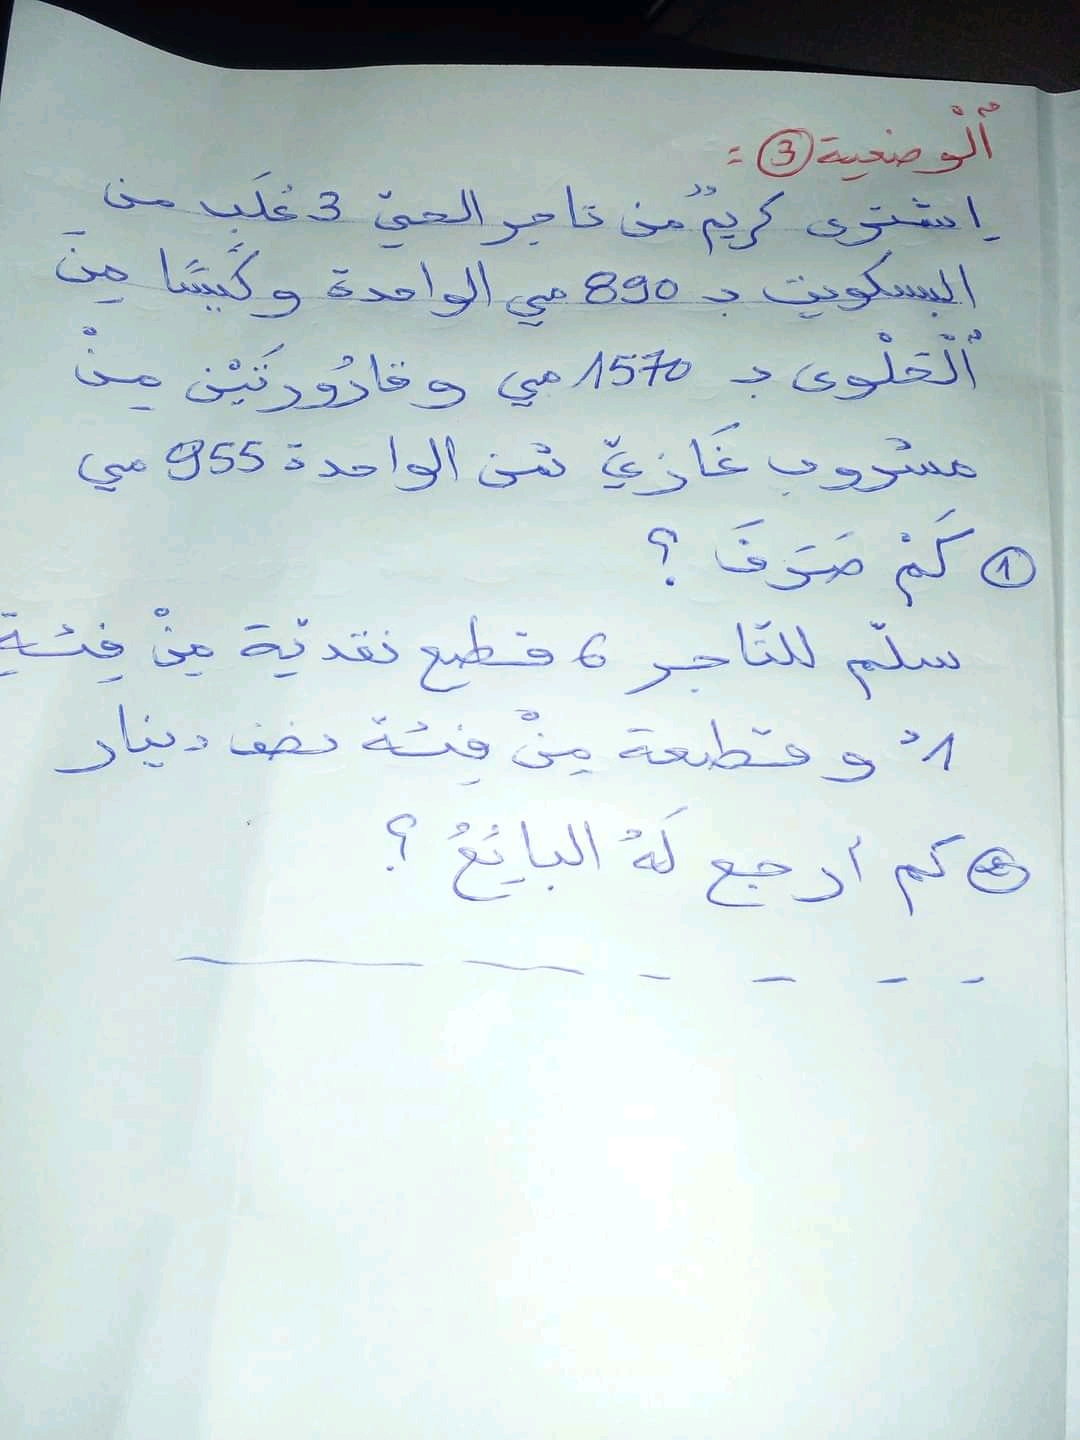 اَلْوضعية ③ :
اِشترى كريمٌ من تاجر الحيّ 3 عُلَبٍ من
البسكويت بـ 890 مي الواحدة وكَيسًا مِنَ
اَلْحَلْوى بـ 1570 مي وقارُورَتَيْن مِنْ
مشروب غَازيّ ثمن الواحدة 955 مي
① كَمْ صَرَفَ ؟
سلّم للتّاجر 6 قطع نقديّة مِنْ فِئَةِ
1د وقطعة مِنْ فِئة نصف دينار
② كم أرجع لَهُ البائِعُ ؟